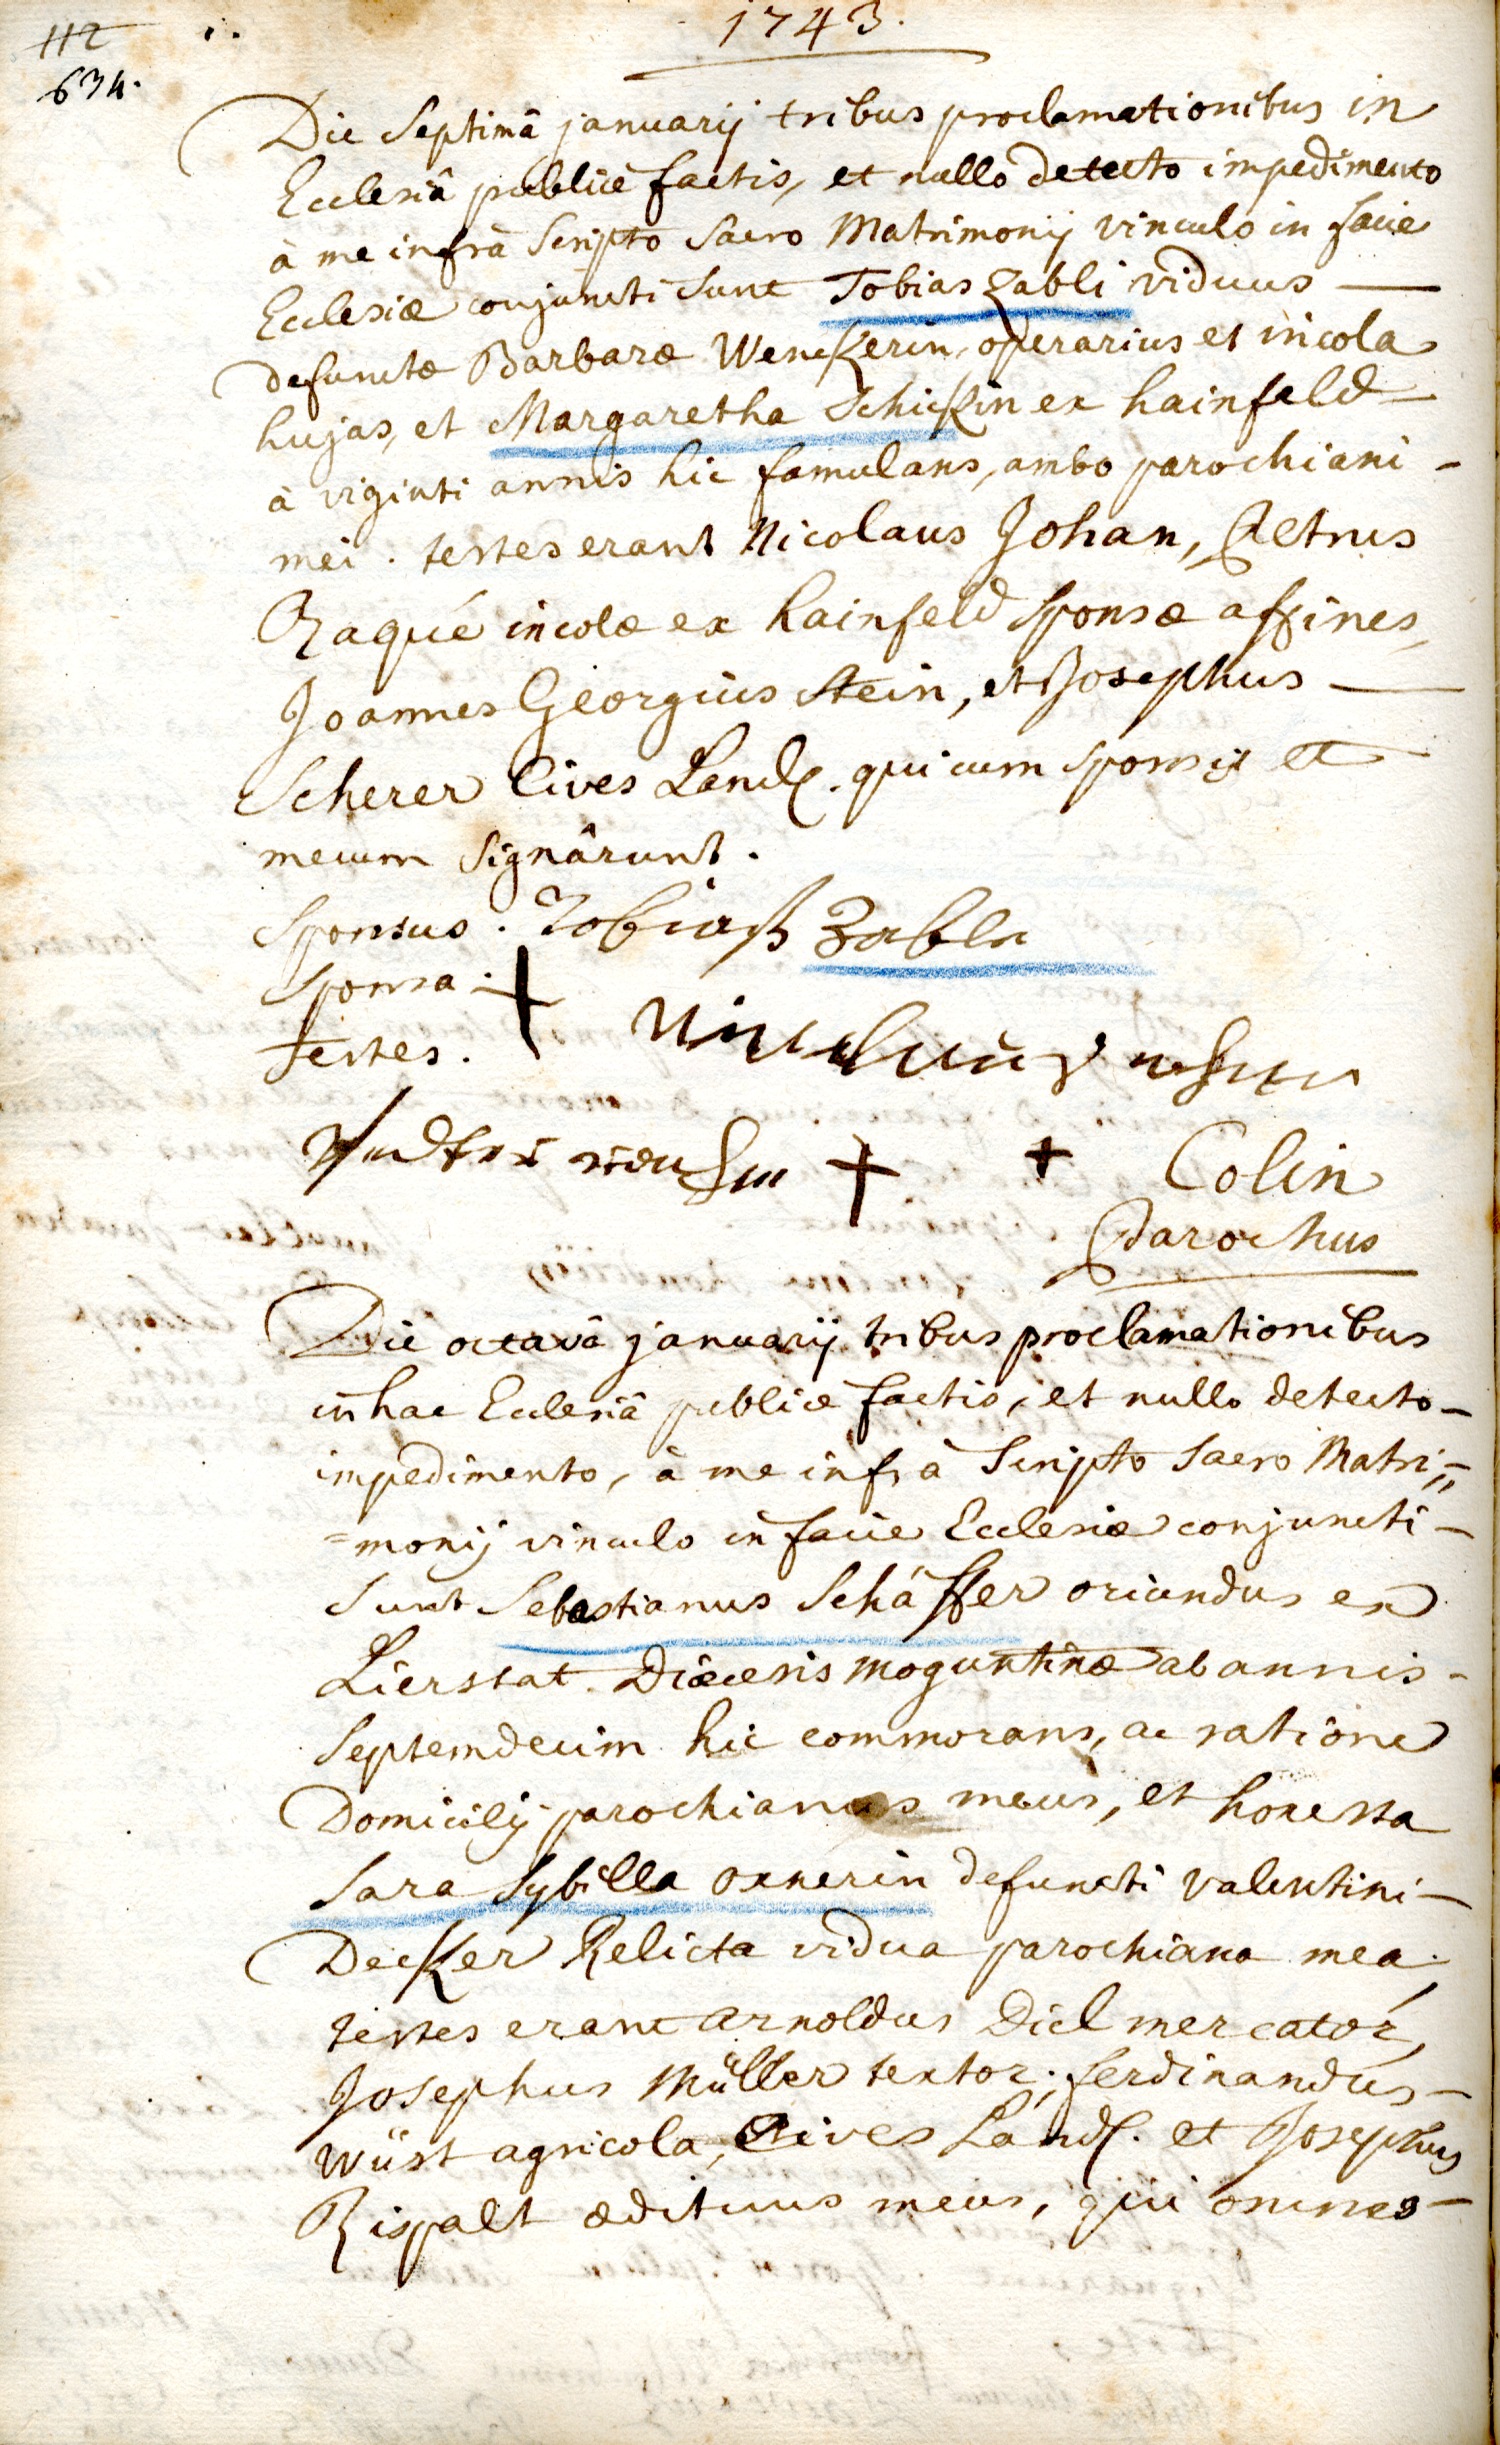 112
634.
1.
1743.
Die Septimâ januarij tribus proclamationibus in
Ecclesiâ publicè factis, et nullo detecto impedimento
à me infrà Scripto Sacro Matrimonij vinculo in facie
Ecclesiæ conjuncti sunt Tobias Zabli viduus —
defunctæ Barbaræ Wenckerin, operarius et incola
hujas, et Margaretha Schickin ex hainfeld —
à viginti annis hic famulans, ambo parochiani -
mei. testes erant Nicolaus Johan, Petrus
Raqué incolæ ex hainfeld sponsæ affines,
Joannes Georgius Stein, et Josephus —
Scherer Cives Land. qui cum sponsis et
mecum signârunt.
Sponsus. Tobiaß Zable
Sponsa. +
testes.
+ + Colin
Parochus
Die octavâ januarij tribus proclamationibus
in hac Ecclesiâ publicè factis, et nullo detecto -
impedimento, à me infrà Scripto Sacro Matri=
=monij vinculo in facie Ecclesiæ conjuncti -
sunt Sebastianus Schäffer oriundus ex
Lierstat Diœcesis moguntinæ ab annis -
Septemdecim hic commorans, ac ratione
Domicilij parochianus meus, et honesta
Sara Sybilla Oxnerin defuncti Valentini -
Decker Relicta vidua parochiana mea.
testes erant Arnoldus Diel mercator,
Josephus Müller textor, ferdinandus -
Wüst agricola, Cives Land. et Josephus
Rispalt ædituus meus, qui omnes -